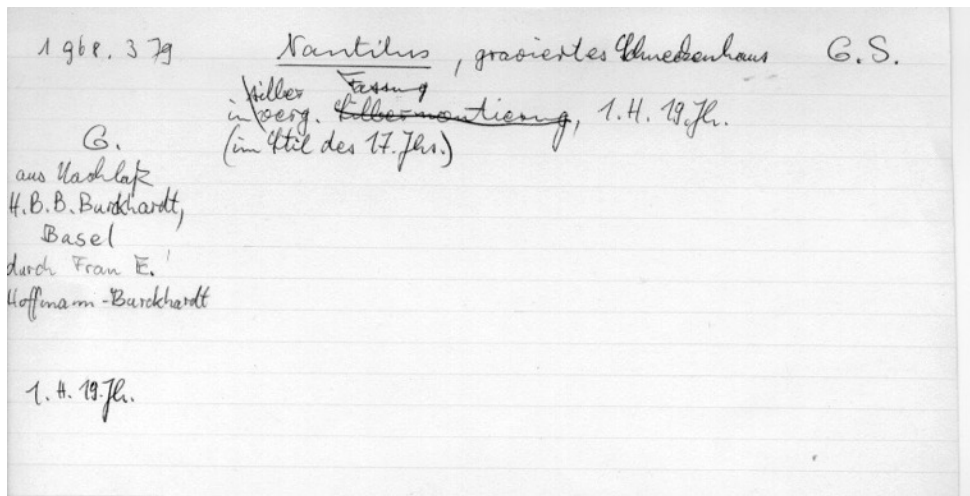 1968. 379 Nautilus, graviertes Schneckenhaus G.S.
silber Fassung
in verg. Silbermontierung, 1. H. 19. Jh.
(im Stil des 17. Jhs.)
G.
aus Nachlaß
H.B.B. Burckhardt,
Basel
durch Frau E.
Hoffmann-Burckhardt
1. H. 19. Jh.